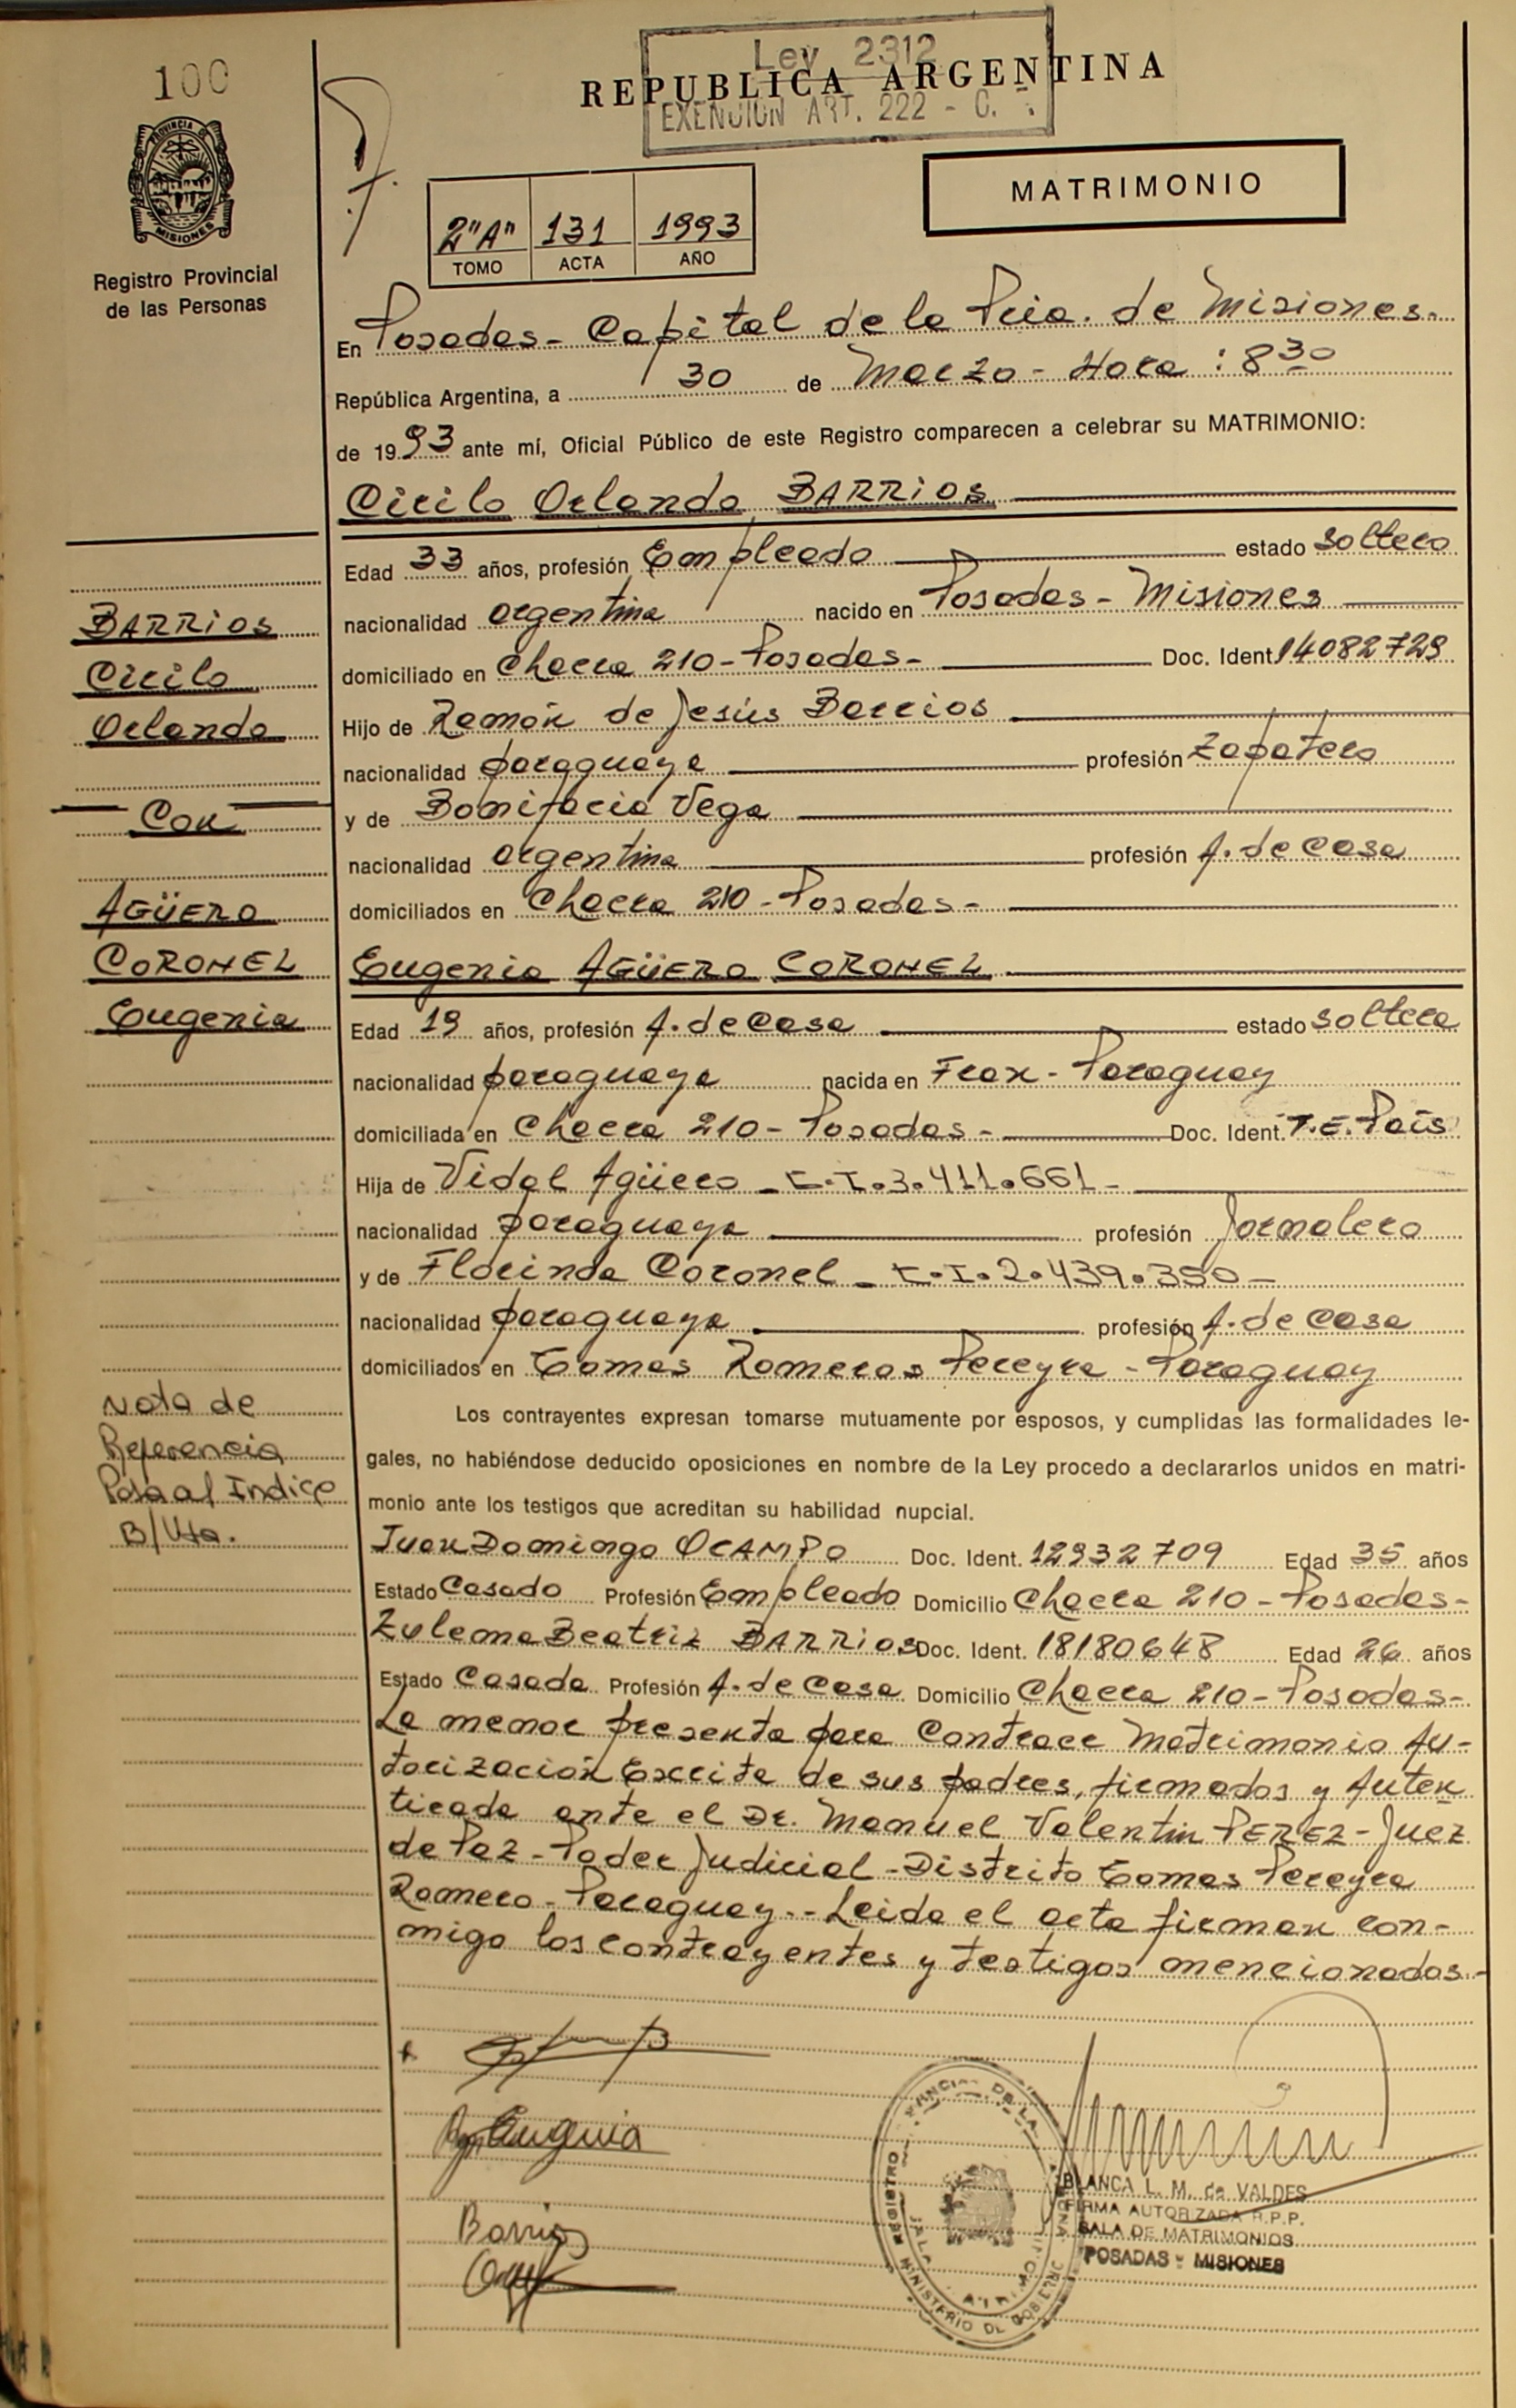 100
Ley 2312
REPUBLICA ARGENTINA
EXENCION ART. 222 - C.
PROVINCIA DE
MISIONES
MATRIMONIO
2"A" 131 1993
TOMO ACTA AÑO
Registro Provincial
de las Personas
En Posadas - Capital de la Pcia. de Misiones.-
República Argentina, a 30 de Marzo - Hora : 8 30
de 1993 ante mí, Oficial Público de este Registro comparecen a celebrar su MATRIMONIO:
Cirilo Orlando BARRIOS
Edad 33 años, profesión Empleado estado soltero
nacionalidad argentina nacido en Posadas - Misiones
domiciliado en Chacra 210 - Posadas - Doc. Ident 14082729
Hijo de Ramón de Jesús Barrios
nacionalidad paraguaya profesión Zapatero
y de Bonifacia Vega
nacionalidad argentina profesión A. de Casa
domiciliados en Chacra 210 - Posadas -
Eugenia AGÜERO CORONEL
Edad 19 años, profesión A. de Casa estado soltera
nacionalidad paraguaya nacida en Fram - Paraguay
domiciliada en Chacra 210 - Posadas - Doc. Ident. T.E. País
Hija de Vidal Agüero - C.I. 3.411.661 -
nacionalidad paraguaya profesión Jornalero
y de Florinda Coronel - C.I. 2.439.350 -
nacionalidad paraguaya profesión A. de Casa
domiciliados en Tomas Romeros Pereyra - Paraguay
Los contrayentes expresan tomarse mutuamente por esposos, y cumplidas las formalidades le-
gales, no habiéndose deducido oposiciones en nombre de la Ley procedo a declararlos unidos en matri-
monio ante los testigos que acreditan su habilidad nupcial.
Juan Domingo OCAMPO Doc. Ident. 12932709 Edad 35 años
Estado Casado Profesión Empleado Domicilio Chacra 210 - Posadas -
Zulema Beatriz BARRIOS Doc. Ident. 18180648 Edad 26 años
Estado Casada Profesión A. de Casa Domicilio Chacra 210 - Posadas -
La menor presenta para Contraer Matrimonio Au-
torización Escrita de sus padres, firmados y Auten
ticada ante el Dr. Manuel Valentin PEREZ - Juez
de Paz - Poder Judicial - Distrito Tomas Pereyra
Romero - Paraguay.- Leida el acta firman con-
migo los contrayentes y testigos mencionados.-
BARRIOS
Cirilo
Orlando
Con
AGÜERO
CORONEL
Eugenia
Nota de
Referencia
Pasa al Indice
B/Vta.
Eugenia
Barrios
REGISTRO
DE LA
MINISTERIO DE GOB
BLANCA L. M. de VALDES
FIRMA AUTORIZADA R.P.P.
SALA DE MATRIMONIOS
POSADAS - MISIONES